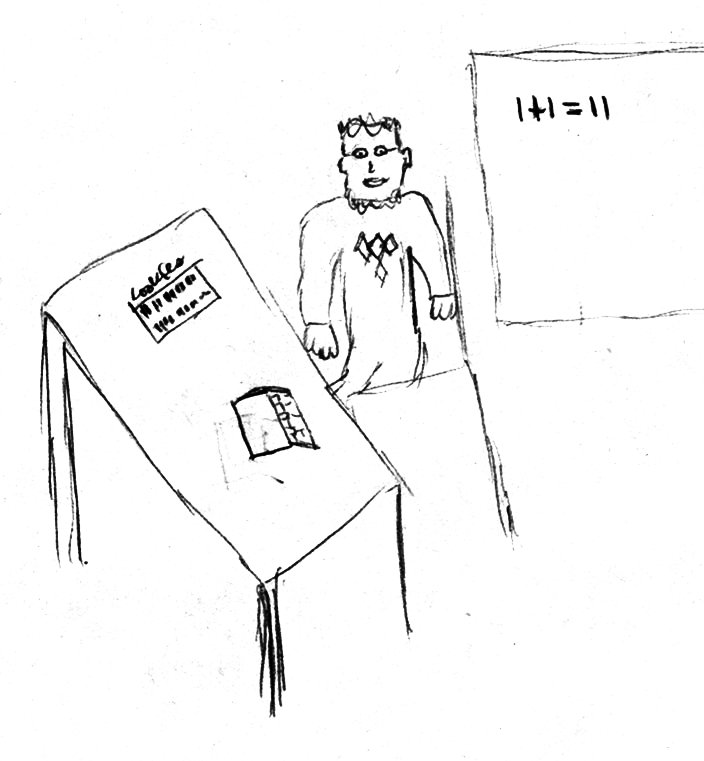 1+1=11
cookies